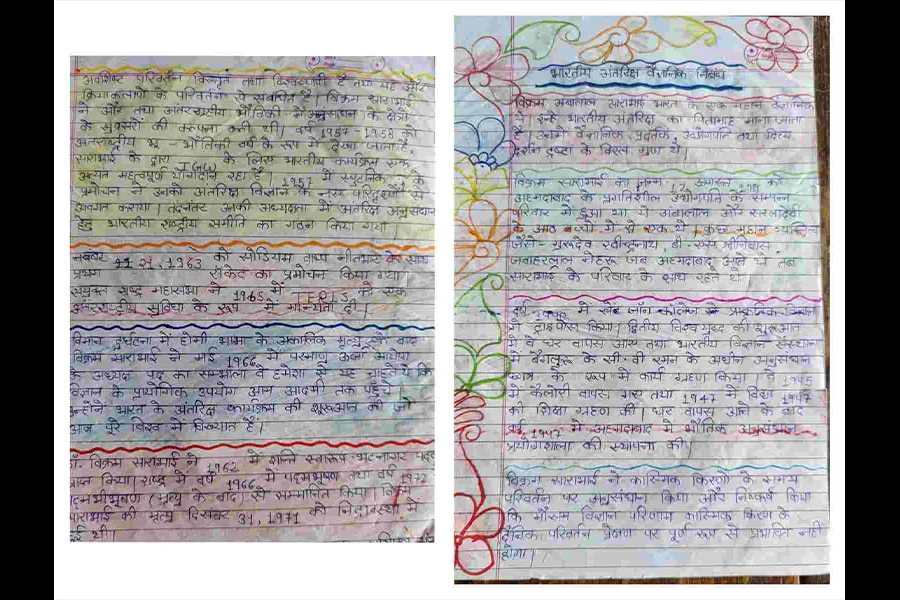 भारतीय अंतरिक्ष वैज्ञानिक निबंध
विक्रम अंबालाल साराभाई भारत के एक महान वैज्ञानिक
थे। इन्हें भारतीय अंतरिक्ष का पितामाह माना जाता
है। उनमें वैज्ञानिक प्रवर्तक, उद्योगपति तथा दिव्य
दर्शन दृष्टा के विरल गुण थे।
विक्रम साराभाई का जन्म 12 अगस्त को
अहमदाबाद के प्रगतिशील उद्योगपति के सम्पन्न
परिवार में हुआ था ये अंबालाल और सरलादेवी
के आठ बच्चों में से एक थे। कुछ महान व्यक्तित्व
जैसे- गुरुदेव रवीन्द्रनाथ, बी- एस श्रीनिवास
जवाहरलाल नेहरू जब अहमदाबाद आते थे तब
साराभाई के परिवार के साथ रहते थे
वर्ष 1940 में सेंट जॉन कॉलेज से प्राकृतिक विज्ञान
में ट्राइपोस किया। द्वितीय विश्वयुध्द की शुरूआत
में वे घर वापस आए तथा भारतीय विज्ञान संस्थान
में बैंगलुरू के सी. वी रमन के अधीन अनुसंधान
छात्र के रूप में कार्य ग्रहण किया। वे 1945
में कैलोरी वापस गए तथा 1947 में विद्या 1947
की शिक्षा ग्रहण की। घर वापस आने के बाद
वर्ष 1947 में अहमदाबाद में भौतिक अनुसंधान
प्रयोगशाला की स्थापना की।
विक्रम साराभाई ने कास्मिक किरणों के समय
परिवर्तन पर अनुसंधान किया और निष्कर्ष किया
कि मौसम विज्ञान परिणाम कास्मिक किरण के
दैनिक परिवर्तन प्रेक्षण पर पूर्ण रूप से प्रभावित नहीं
होगा।
अवशिष्ट परिवर्तन विस्तृत तथा विश्वव्यापी है तथा यह सौर
क्रियाकलापों के परिवर्तन से संबंधित है। विक्रम साराभाई
ने सौर तथा अंतरग्रहीय भौतिकी में अनुसंधान के क्षेत्रों
के सुअवसरों की कल्पना की थी। वर्ष 1957 1958 को
अंतर्राष्ट्रीय भू - भौतिकी वर्ष के रूप में देखा जाता है
साराभाई के द्वारा IGW के लिए भारतीय कार्यक्रम एक
अत्यंत महत्वपूर्ण योगदान रहा है। 1957 में स्पुटनिक के
प्रमोचन ने उनको अंतरिक्ष विज्ञान के नए परिदृश्यों से
अवगत कराया। तदनंतर उनकी अध्यक्षता में अंतरिक्ष अनुसंधान
हेतु भारतीय राष्ट्रीय समीति का गठन किया गया।
नवंबर 21, 1963 को सोडियम वाष्प नीतभार के साथ
प्रथम रॉकेट का प्रमोचन किया गया।
संयुक्त राष्ट्र महासभा ने 1965 में TERLS को एक
अंतरराष्ट्रीय सुविधा के रूप में मान्यता दी।
विमान दुर्घटना में होमी भाभा के अकालिक मृत्यु के बाद
विक्रम साराभाई ने मई 1966 में परमाणु ऊर्जा आयोग
के अध्यक्ष पद का सम्भाला वे हमेशा से यह चाहते थे कि
विज्ञान के प्रायोगिक उपयोग आम आदमी तक पहुँचे।
उन्होंने भारत के अंतरिक्ष कार्यक्रम की शुरूआत की जो
आज पूरे विश्व में विख्यात है।
डॉ. विक्रम साराभाई ने 1962 में शान्ति स्वरूप भटनागर पदक
प्राप्त किया। राष्ट्र में वर्ष 1966 में पद्मभूषण तथा वर्ष 1972
पद्मभीभूषण (मृत्यु के बाद) से सम्मानित किया। विक्रम
साराभाई की मृत्यु दिसंबर 31, 1971 को निद्रावस्था में
हुई थी।